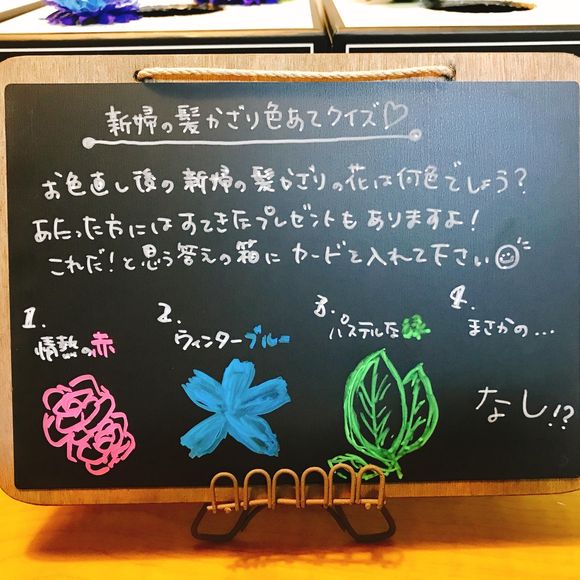 新婦の髪かざり色あてクイズ♡
お色直し後の新婦の髪かざりの花は何色でしょう?
あたった方にはすてきなプレゼントもありますよ!
これだ!と思う答えの箱にカードを入れて下さい
1.
情熱の赤
2.
ウィンターブルー
3.
パステルな緑
4.
まさかの...
なし!?